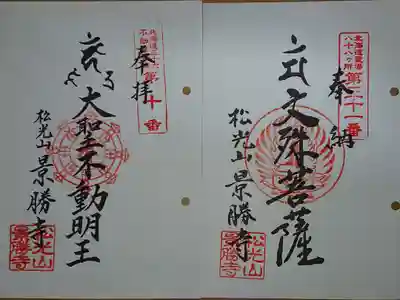 北海道三十六
不動
第十番
奉拝
大聖不動明王
松光山
景勝寺
松光山
景勝寺
北海道霊場
八十八ヶ所
第三十一番
奉納
文殊菩薩
松光山
景勝寺
松光山
景勝寺